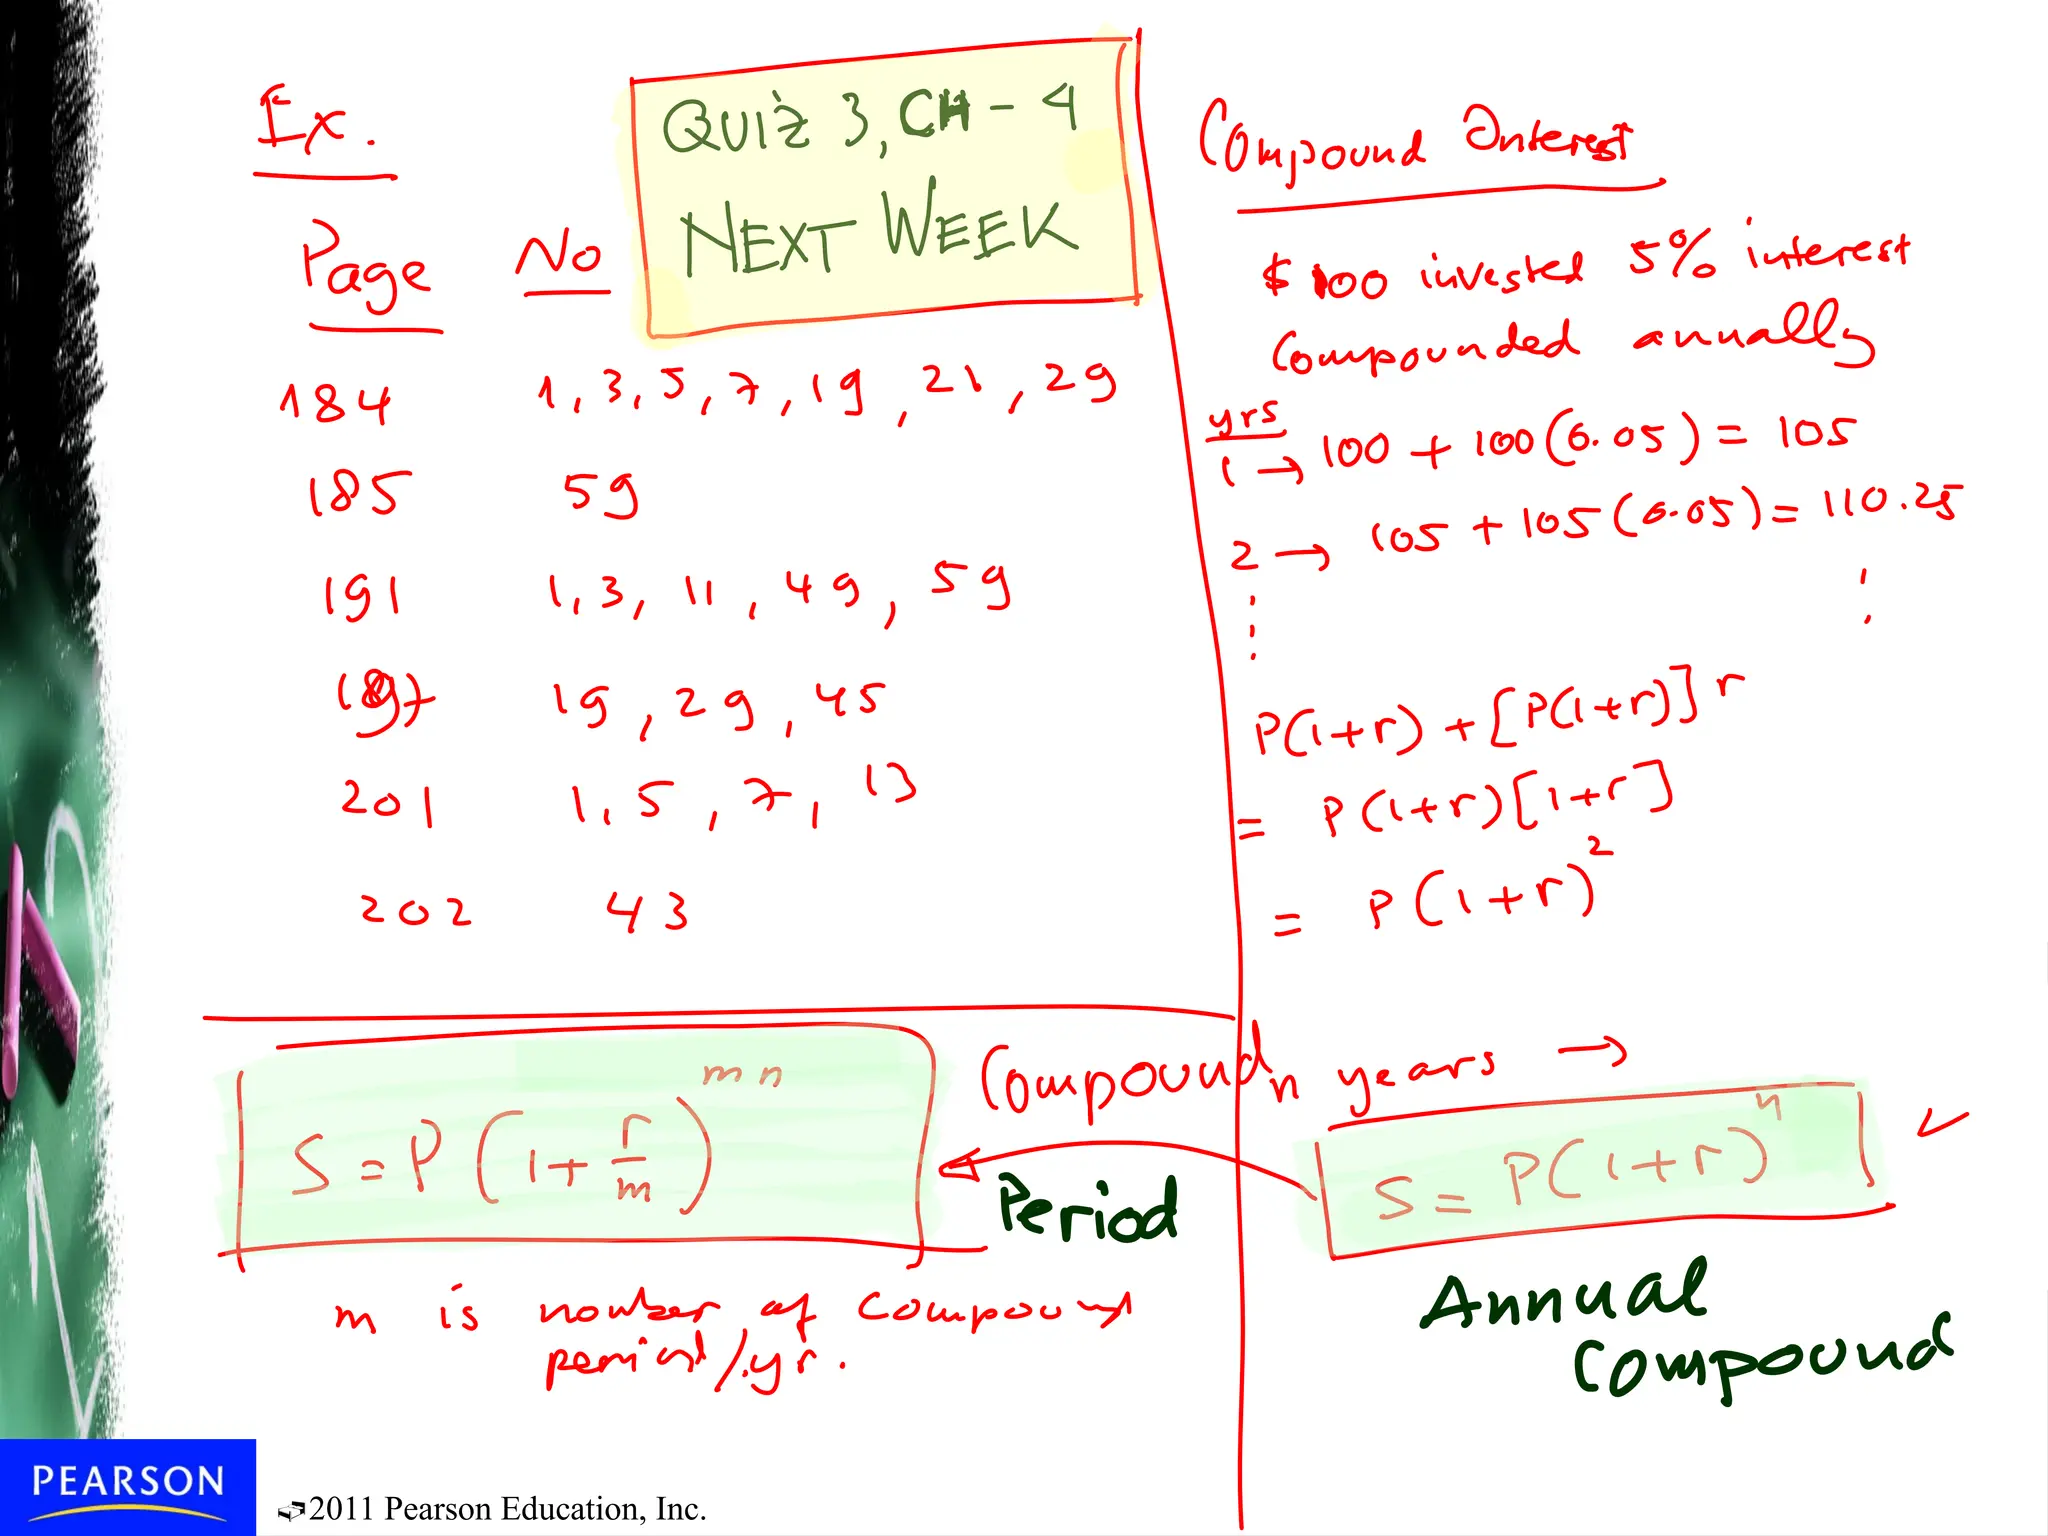 Ex.
QUIZ 3, CH - 4
NEXT WEEK
Page No
184 1, 3, 5, 7, 19, 21, 29
185 59
191 1, 3, 11, 49, 59
197 19, 29, 45
201 1, 5, 7, 13
202 43
Compound Interest
$ 100 invested 5% interest
compounded annually
yrs
1 → 100 + 100 (0.05) = 105
2 → 105 + 105 (0.05) = 110.25
P(1+r) + [P(1+r)] r
= P(1+r)[1+r]
= P(1+r)²
n years →
S = P(1+r)ⁿ ✓
Annual
Compound
Compound
Period
S = P(1 + r/m)^mn
m is number of compound
period/yr.
PEARSON
2011 Pearson Education, Inc.